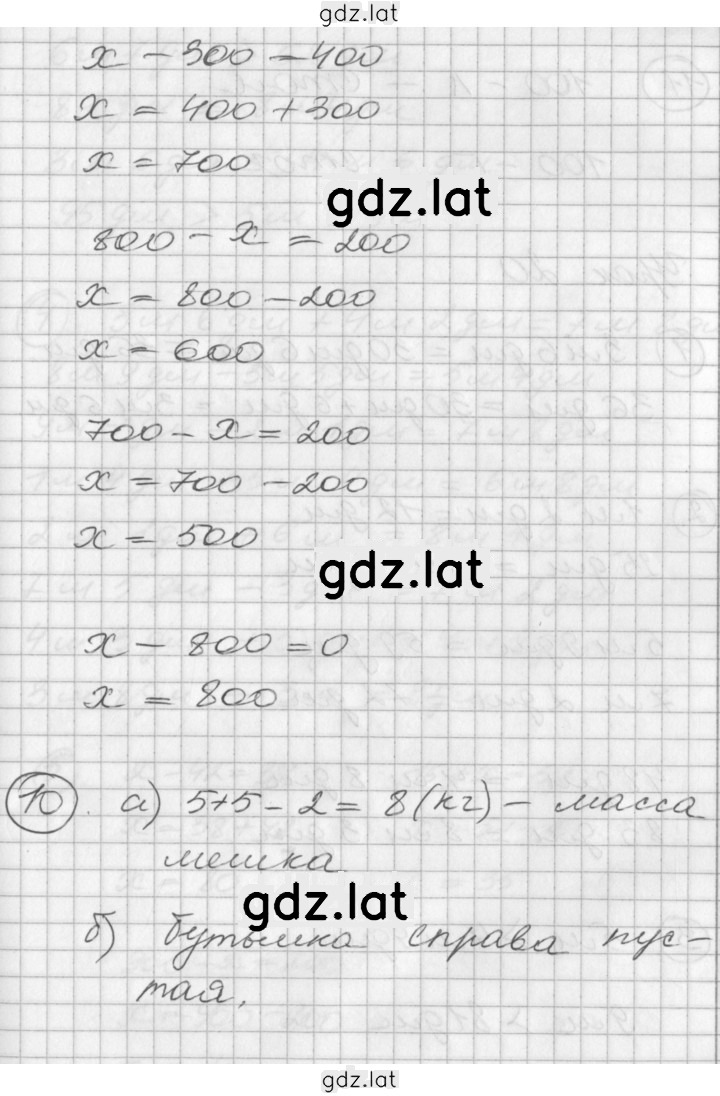 gdz.lat
x - 300 = 400
x = 400 + 300
x = 700
gdz.lat
800 - x = 200
x = 800 - 200
x = 600
700 - x = 200
x = 700 - 200
x = 500
gdz.lat
x - 800 = 0
x = 800
10. а) 5+5-2 = 8 (кг) - масса
мешка
gdz.lat
б) бутылка справа пус-
тая.
gdz.lat